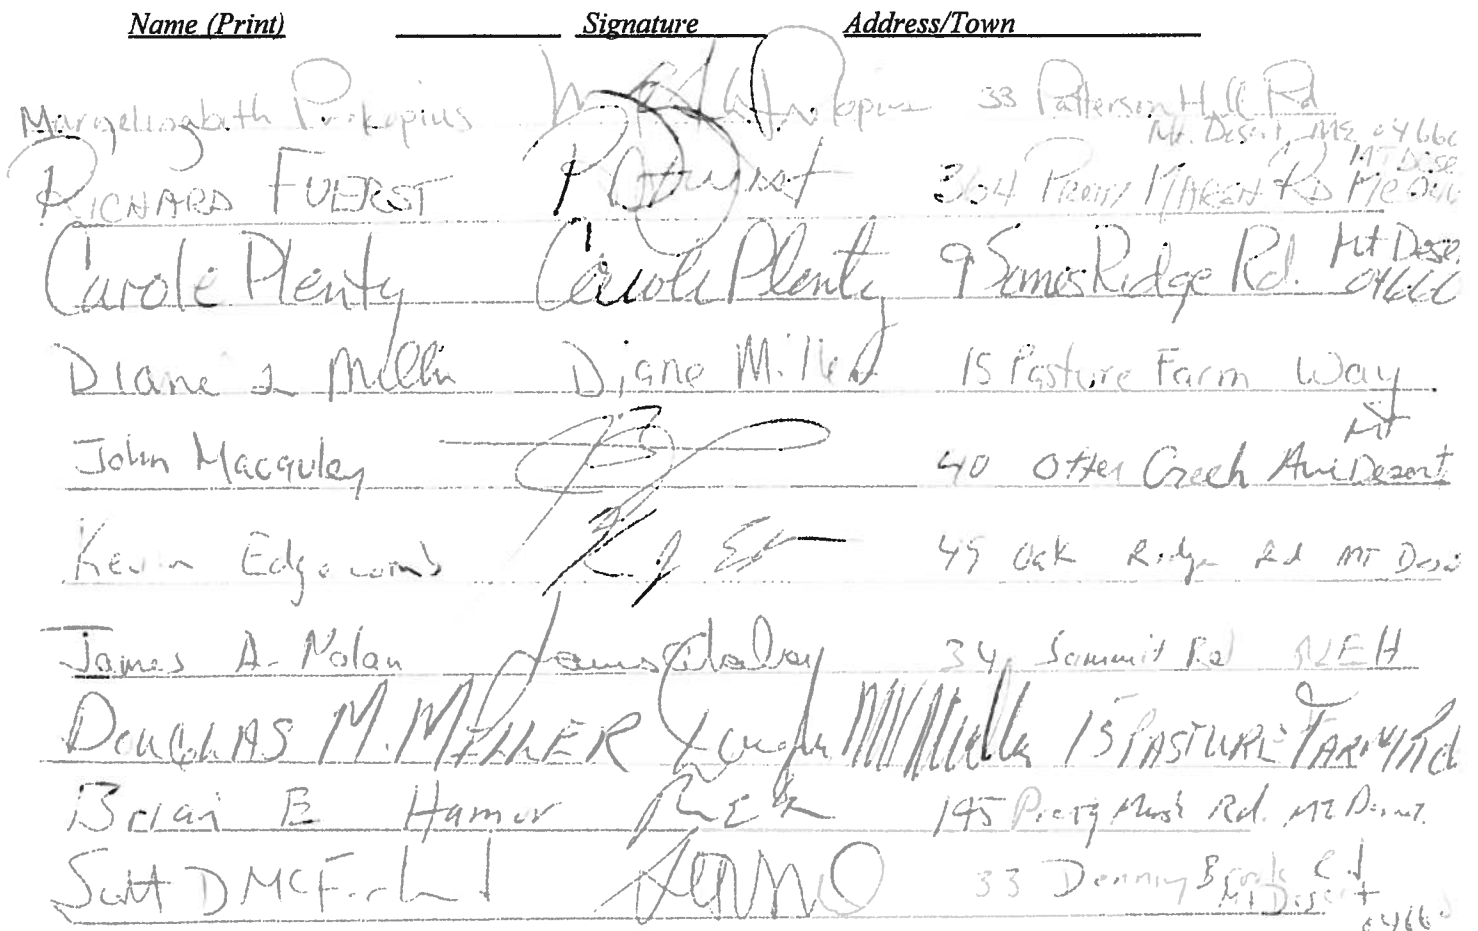 Name (Print) Signature Address/Town
Margelizabeth Prokopius Prokopius 33 Patterson Hill Rd
Mt. Desert, ME 04660
RICHARD FUERST 364 PRETTY MARSH RD MT Dese
Carole Plenty Carole Plenty 9 Somes Ridge Rd. Mt Dese
04660
Diane L Miller Diane Miller 15 Pasture Farm Way
John Macauley 40 Otter Creek Mt Desert
Kevin Edgecomb 49 Oak Ridge Rd MT Dese
James A. Nolan James 34 Summit Rd NEH
DOUGLAS M. MILLER 15 PASTURE FARM Rd
Brian E Hamor 195 Pretty Marsh Rd. Mt Desert.
Scott D McFarland 33 Denning Brook Rd
Mt Desert
04660